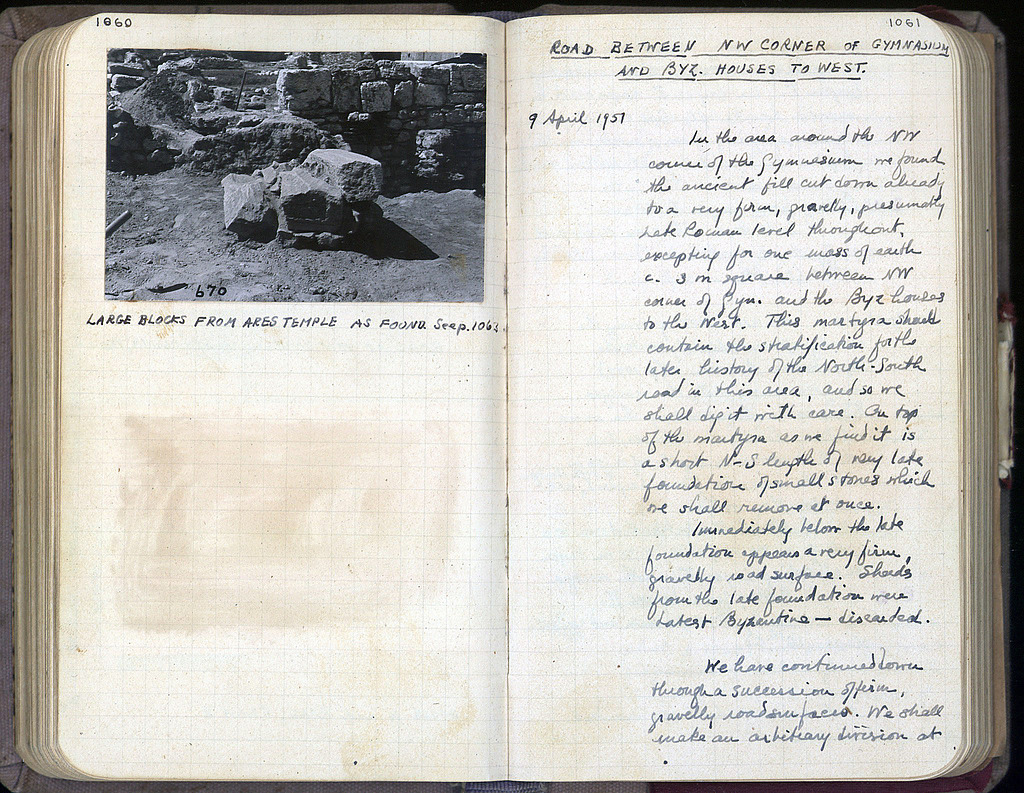 1060
670
LARGE BLOCKS FROM ARES TEMPLE AS FOUND. See p. 1063
1061
ROAD BETWEEN NW CORNER OF GYMNASIUM
AND BYZ. HOUSES TO WEST.
9 April 1951
In the area around the NW
corner of the Gymnasium we found
the ancient fill cut down already
to a very firm, gravelly, presumably
late Roman level throughout,
excepting for one mass of earth
c. 3 m square between NW
corner of Gym. and the Byz houses
to the West. This martyra should
contain the stratification for the
later history of the North-South
road in this area, and so we
shall dig it with care. On top
of the martyra as we find it is
a short N-S length of very late
foundation of small stones which
we shall remove at once.
Immediately below the late
foundation appears a very firm,
gravelly road surface. Sherds
from the late foundation were
Latest Byzantine — discarded.
We have continued down
through a succession of firm,
gravelly road surfaces. We shall
make an arbitrary division at